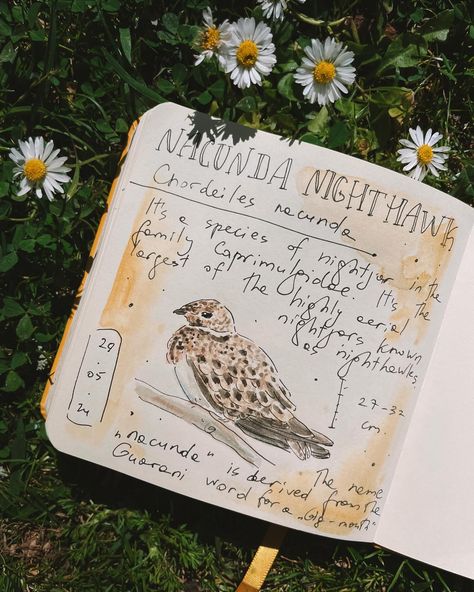 NACUNDA NIGHTHAWK
Chordeiles nacunda
It's a species of nightjar in the
family Caprimulgidae. It's the
largest of the highly aerial
nightjars known
as nighthawks.
29
05
24
27-32
cm.
The name
"nacunda" is derived from the
Guarani word for a „big-mouth"